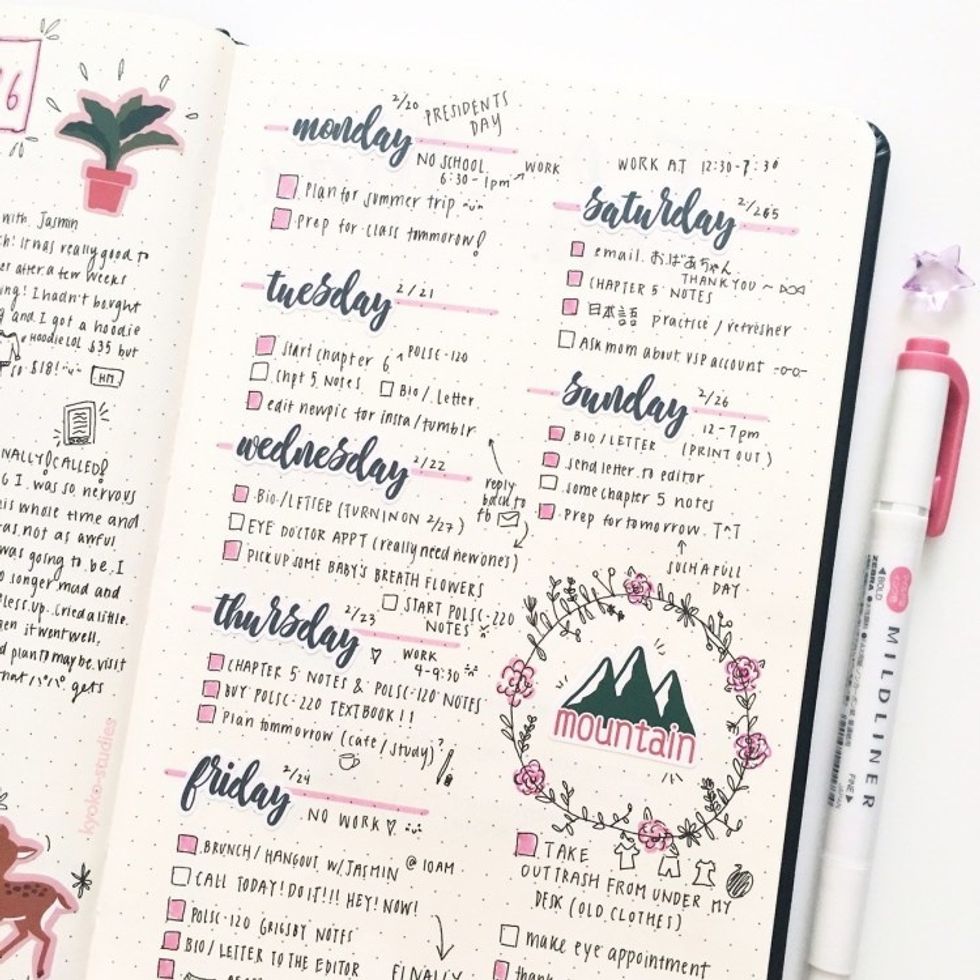 6
with Jasmin
ch! It was really good to
er after a few weeks
ng! I hadn't bought
g and I got a hoodie
Hoodie LOL $35 but
so $18!
HM
NALLY! CALLED!
6 I was so nervous
is whole time and
as not as awful
was going to be. I
o longer mad and
less up. cried a little.
en it went well.
d plan to maybe visit
hat パパ gets
kyoko-studies
monday
2/20 PRESIDENTS
DAY
NO SCHOOL
6:30-1pm → WORK
Plan for summer trip
Prep for class tommorow!
tuesday
2/21
Start chapter 6 POLSC-120
Chpt 5 Notes
Bio / Letter
edit new pic for insta/tumblr
reply
back to
fb
wednesday
2/22
BIO / LETTER (TURN IN ON 2/27)
EYE DOCTOR APPT (really need new ones)
PICK UP SOME BABY'S BREATH FLOWERS
START POLSC-220
NOTES
thursday
2/23
WORK
4-9:30
CHAPTER 5 NOTES & POLSC-120 NOTES
BUY POLSC-220 TEXTBOOK!!
Plan tommorrow (cafe / study)?
friday
2/24
NO WORK
BRUNCH / HANGOUT W/JASMIN @ 10AM
CALL TODAY! DO IT!!! HEY! NOW!
POLSC-120 GRIGSBY NOTES
BIO / LETTER TO THE EDITOR
FINALLY
WORK AT 12:30-7:30
saturday
2/25
email おばあちゃん
THANK YOU ~
CHAPTER 5 NOTES
日本語 practice / refresher
Ask mom about VSP account
sunday
2/26
12-7pm
BIO / LETTER (PRINT OUT)
send letter to editor
some chapter 5 notes
Prep for tomorrow. T^T
SUCH A FULL
DAY
mountain
TAKE
OUT TRASH FROM UNDER MY
DESK (OLD CLOTHES)
make eye appointment
thank
ZEBRA
BOLD
MILDLINER
FINE